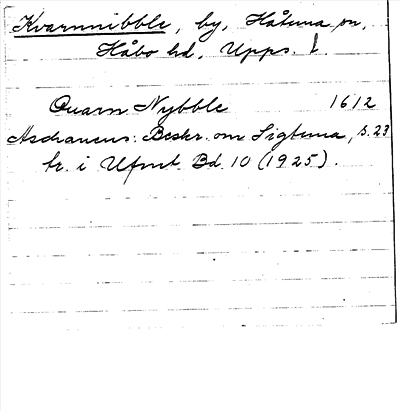 Kvarnnibble, by, Håtuna sn,
Håbo hd, Upps. l.
Quarn Nybble 1612
Aschaneus: Beskr. om Sigtuna, s. 23
tr. i Ufmt. Bd. 10 (1925).